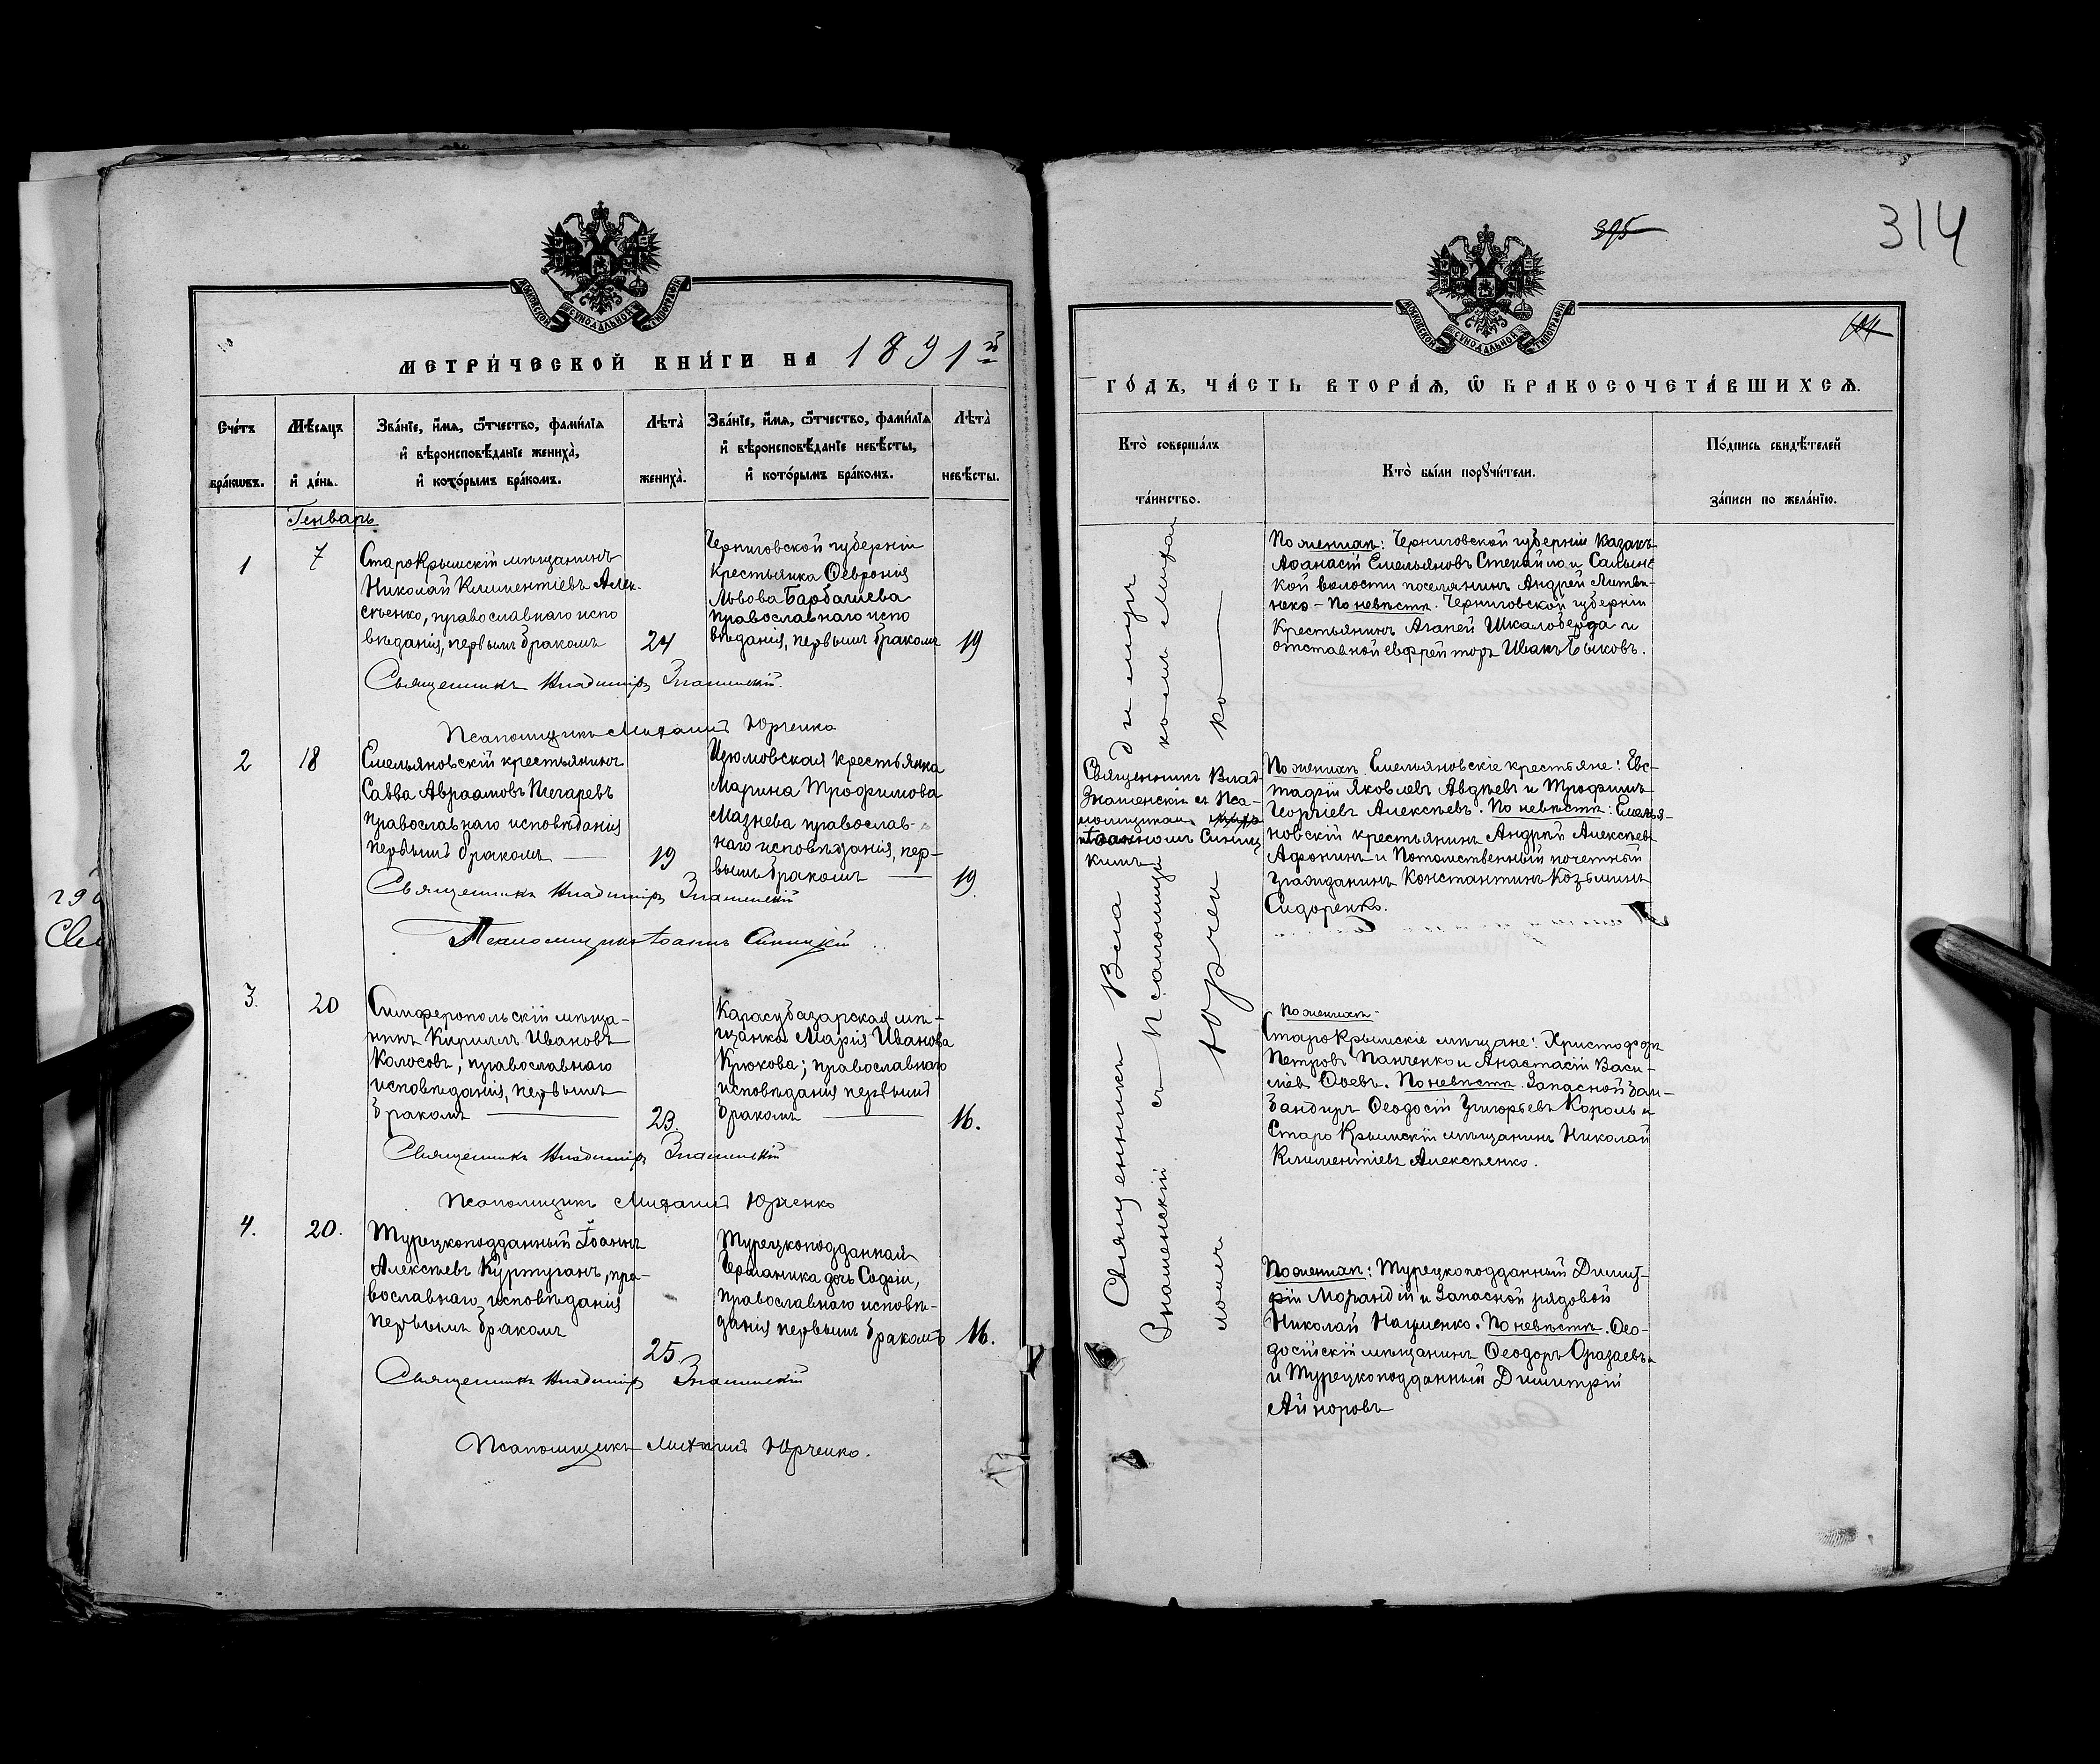 МЕТРИ́ЧЕСКОЙ КНИ́ГИ НА 1891й
Сче́тъ бра́кѡвъ.
Мѣ́сяцъ и де́нь.
Зва́нїе, и́мѧ, ѻ́тчество, фами́лїѧ и вѣроисповѣ́данїе жениха̀, и кото́рымъ бра́комъ.
Лѣта̀ жениха̀.
Зва́нїе, и́мѧ, ѻ́тчество, фами́лїѧ и вѣроисповѣ́данїе невѣ́сты, и кото́рымъ бра́комъ.
Лѣта̀ невѣ́сты.
Генварь
1
7
Старокрымскій мѣщанинъ
Николай Климентіевъ Алек-
сѣенко, православнаго испо
вѣданія, первымъ бракомъ
24
Черниговской губерніи
крестьянка Ѳевронія
Львова Барбашева
православнаго испо
вѣданія, первымъ бракомъ
19
Священникъ Владиміръ Знаменскій.
Псаломщикъ Михаилъ Юрченко
2
18
Емельяновскій крестьянинъ
Савва Авраамовъ Тегаревъ
православнаго исповѣданія
первымъ бракомъ
19
Изюмовская крестьянка
Марина Трофимова
Мазнева православ-
наго исповѣданія, пер-
вымъ бракомъ
19.
Священникъ Владиміръ Знаменскій
Псаломщикъ Іоаннъ Синицкій
3.
20
Симферопольскій мѣща-
нинъ Кириллъ Ивановъ
Колосовъ, православнаго
исповѣданія, первымъ
бракомъ
23.
Карасубазарская мѣ-
щанка Марія Иванова
Крюкова; православнаго
исповѣданія первымъ
бракомъ
16.
Священникъ Владиміръ Знаменскій
Псаломщикъ Михаилъ Юрченко
4.
20.
Турецкоподданный Іоаннъ
Алексѣевъ Куртуганъ, пра-
вославнаго исповѣданія
первымъ бракомъ
25.
Турецкоподданная
дочь Софіи,
православнаго исповѣ-
данія первымъ бракомъ
16.
Священникъ Владиміръ Знаменскій
Псаломщикъ Михаилъ Юрченко.
395
314
ГО́ДЪ, ЧА́СТЬ ВТОРА́Ѧ, Ѡ БРАКОСОЧЕТА́ВШИХСѦ.
Кто̀ соверша́лъ та́инство.
Кто̀ бы́ли порꙋчи́тели.
По́дпись свидѣ́телей за́писи по жела́нїю.
Священникъ Вла димиръ
Знаменскій съ Псаломщи комъ Михаи
ломъ Юрчен ко
Священникъ Влад.
Знаменскій и Пса-
ломщикомъ
Іоанномъ Синиц
кимъ
По женихѣ: Черниговской губерніи казакъ
Аѳанасій Емельяновъ Стекайло и Салынс
кой волости поселянинъ Андрей Литви-
неко – По невѣстѣ. Черниговской губерніи
крестьянинъ Агапей Шкалоберда и
отставной ефрейторъ Иванъ Быковъ.
По женихѣ. Емельяновскіе крестьяне: Евс-
тафій Яковлевъ Авдѣевъ и Трофимъ
Георгіевъ Алексѣевъ. По невѣстѣ: Емелья-
новскій крестьянинъ Андрей Алексѣевъ
Афонинъ и Потомственный почетный
гражданинъ Константинъ Козьминъ
Сидоренко.
По женихѣ.
Старокрымскіе мѣщане: Христофоръ
Петровъ Панченко и Анастасій Васи-
ліев Фоевъ. По невѣстѣ. Запасной бом-
бандиръ Ѳеодосій Григорьевъ Король и
Старо Крымскій мѣщанинъ Николай
Климентіевъ Алексѣенко.
По женихѣ: Турецкоподданный Димит-
рій Морандій и Запасной рядовой
Николай Науменко. По невѣстѣ. Ѳео-
досійскій мѣщанинъ Ѳеодоръ Оразаевъ
и Турецкоподданный Димитрій
Айноровъ